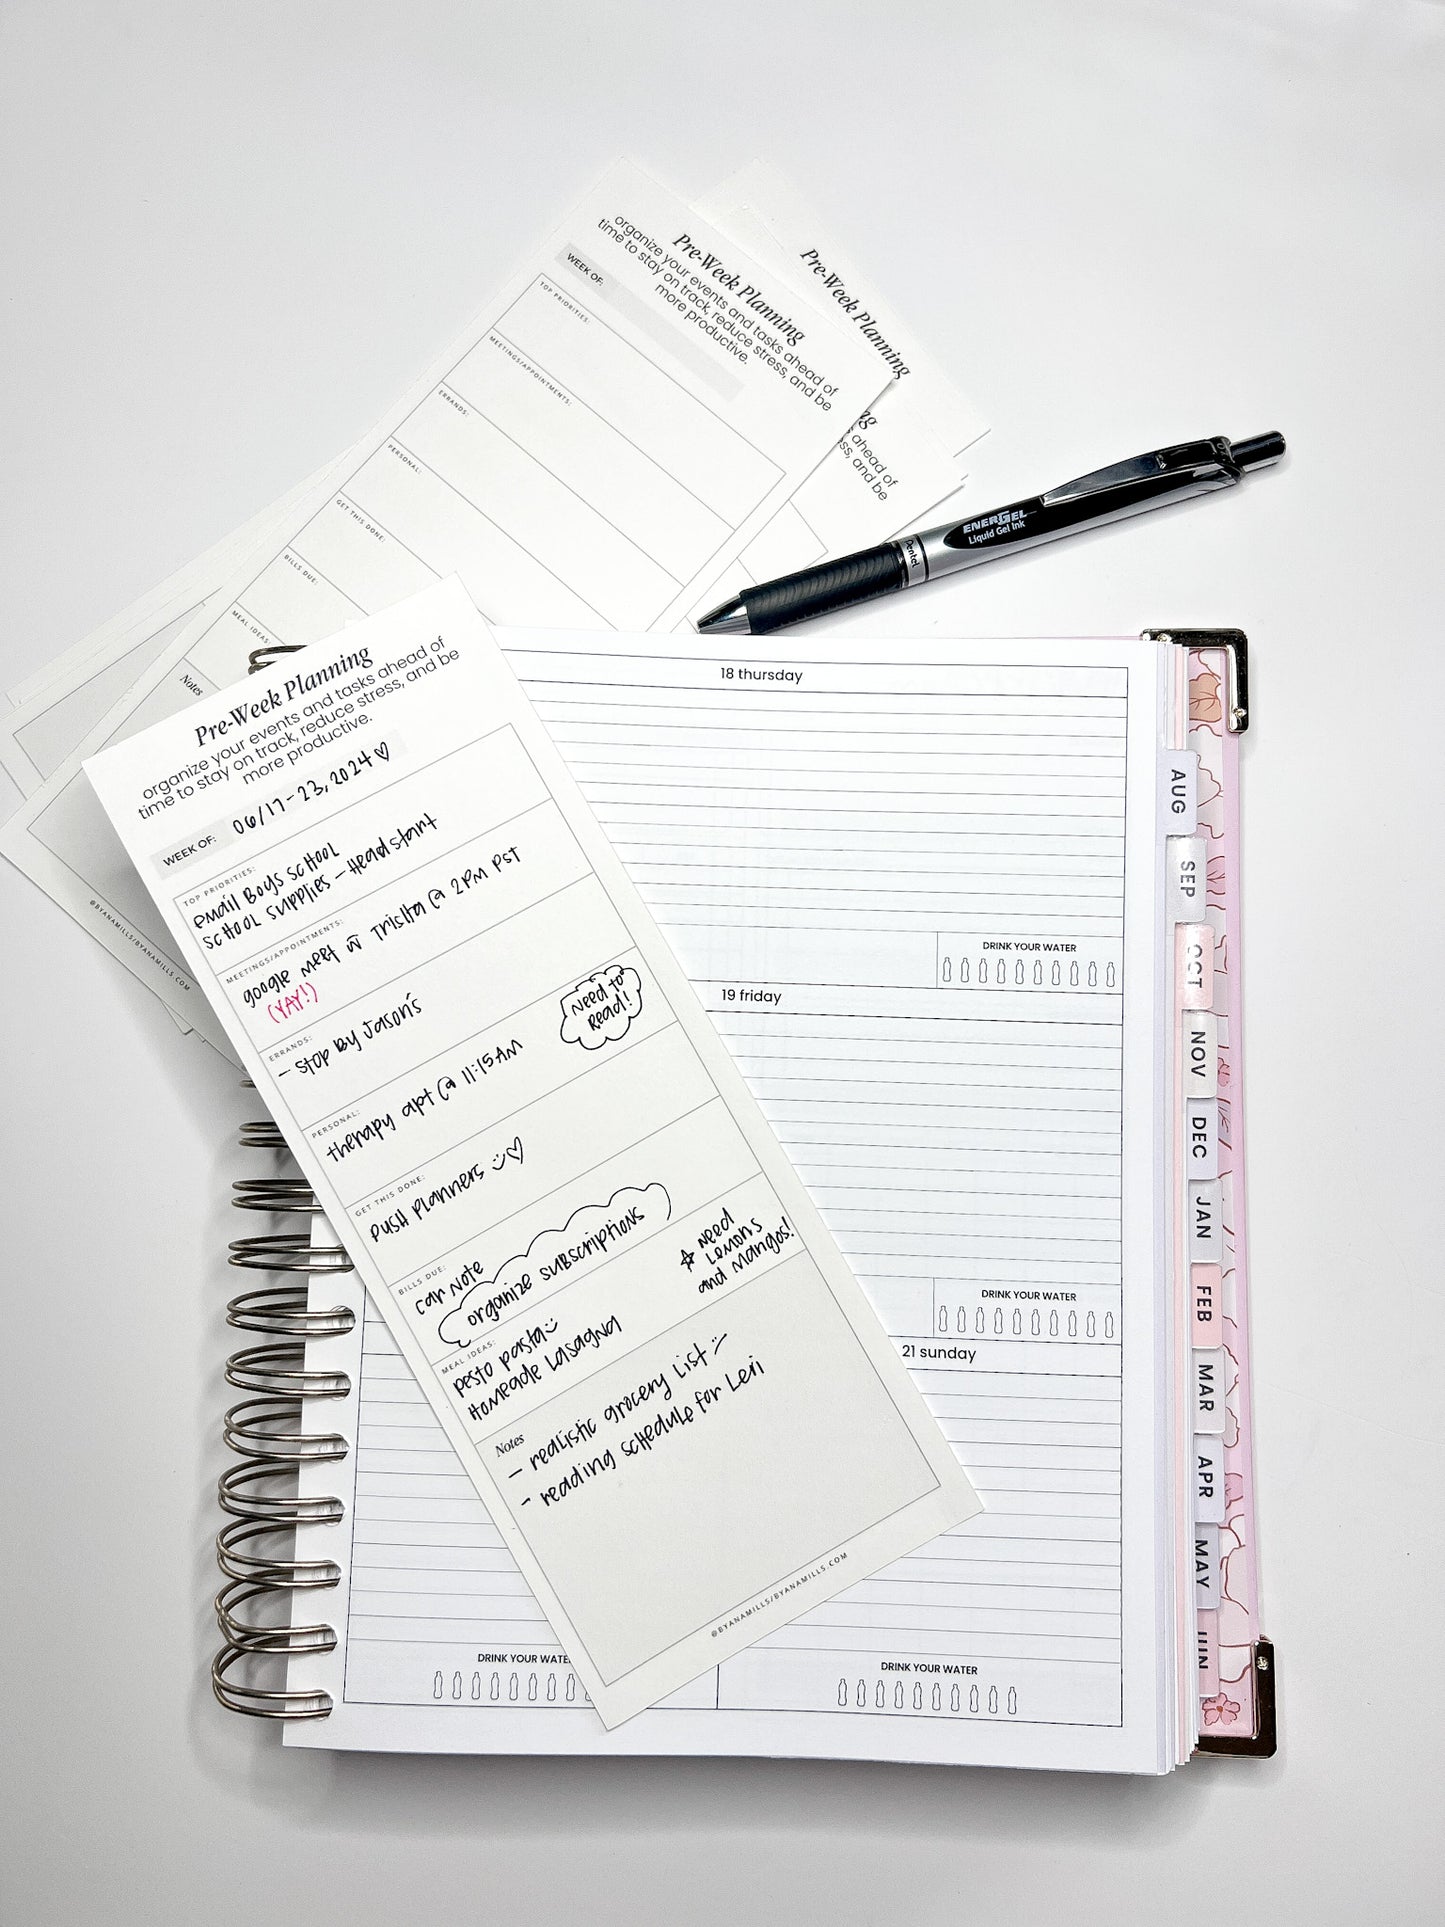 Pre-Week Planning
organize your events and tasks ahead of
time to stay on track, reduce stress, and be
more productive.
WEEK OF:
TOP PRIORITIES:
MEETINGS/APPOINTMENTS:
ERRANDS:
PERSONAL:
GET THIS DONE:
BILLS DUE:
MEAL IDEAS:
Notes
Pre-Week Planning
ng
ahead of
ss, and be
ENERGEL
Liquid Gel Ink
Pentel
@BYANAMILLS/BYANAMILLS.COM
Pre-Week Planning
organize your events and tasks ahead of
time to stay on track, reduce stress, and be
more productive.
WEEK OF: 06/17-23, 2024 ♡
TOP PRIORITIES:
email Boys school
school supplies - Headstart
MEETINGS/APPOINTMENTS:
google meet w Trisha @ 2PM PST
(YAY!)
ERRANDS:
- stop by Jason's
Need to
Read!
PERSONAL:
therapy apt @ 11:15AM
GET THIS DONE:
push planners ♡
BILLS DUE:
car note
organize subscriptions
☆ need
lemons
and mangos!
MEAL IDEAS:
pesto pasta
Homeade lasagna
Notes
- realistic grocery list
- reading schedule for Leri
@BYANAMILLS/BYANAMILLS.COM
18 thursday
DRINK YOUR WATER
19 friday
DRINK YOUR WATER
21 sunday
DRINK YOUR WATER
DRINK YOUR WATER
AUG
SEP
OCT
NOV
DEC
JAN
FEB
MAR
APR
MAY
JUN